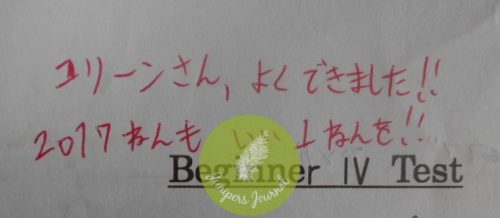 コリーンさん, よくできました!!
2017ねんも いい1ねんを!!
Beginner IV Test
Junipers Journal